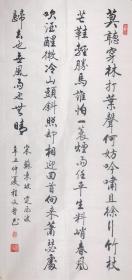 莫聽穿林打葉聲何妨吟嘯且徐行竹杖
芒鞋輕勝馬誰怕一蓑煙雨任平生料峭春風
吹酒醒微冷山頭斜照却相迎回首向來蕭瑟處
歸去也無風雨也無晴
宋蘇東坡定風波
辛丑仲夏